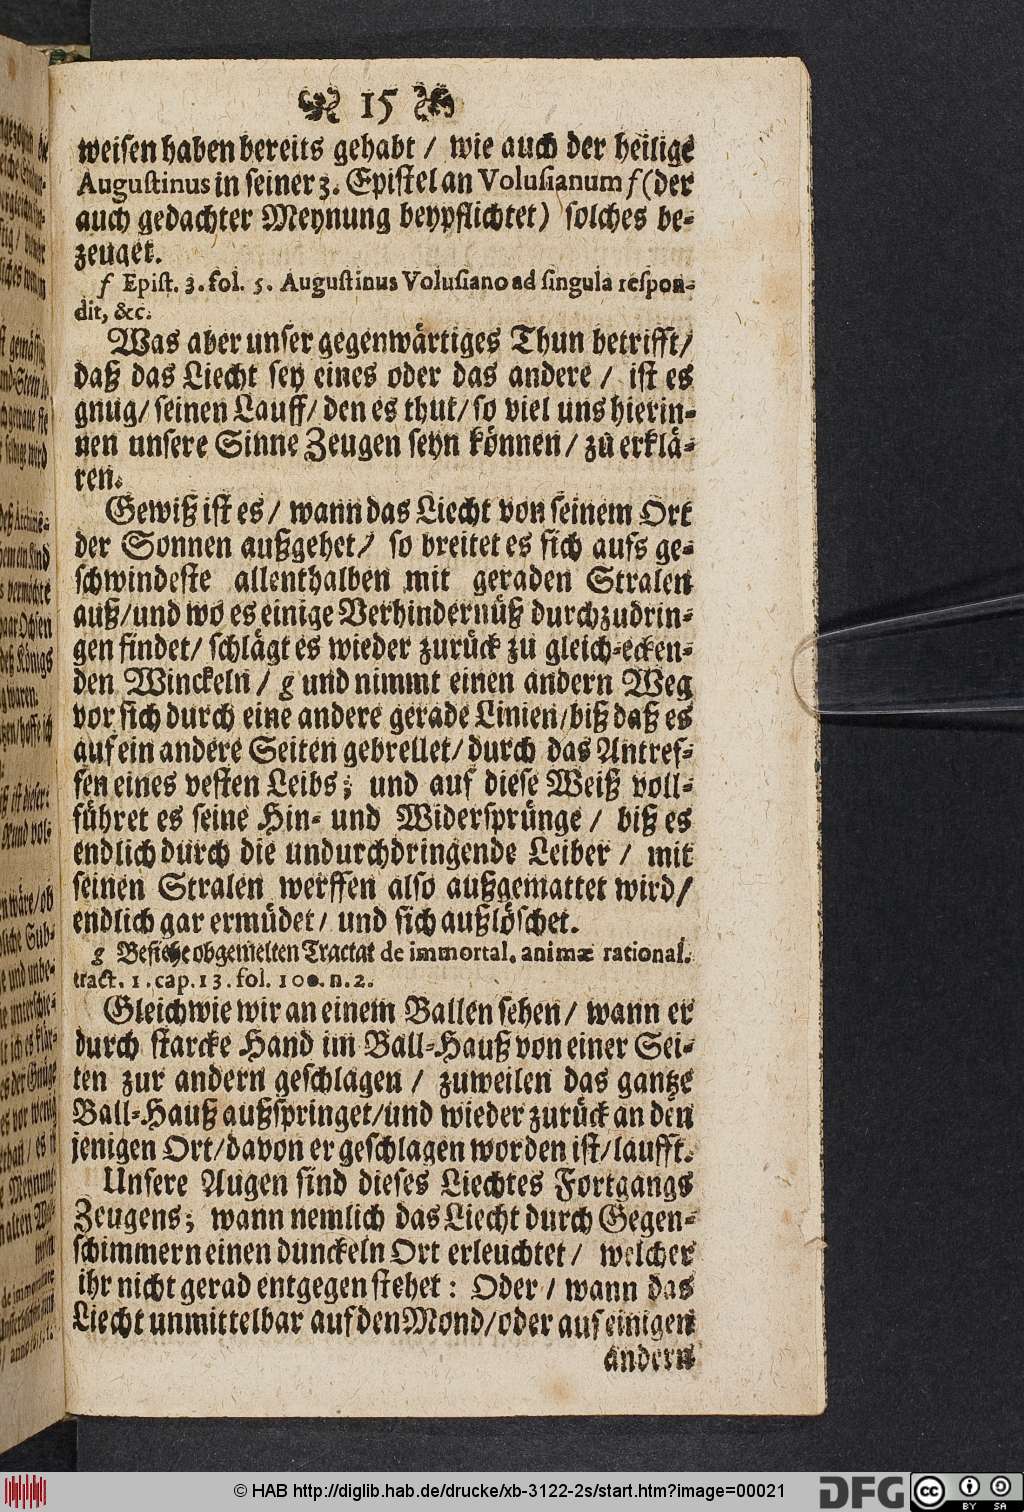 15
weisen haben bereits gehabt / wie auch der heilige
Augustinus in seiner 3. Epistel an Volusianum f (der
auch gedachter Meynung beypflichtet) solches be-
zeuget.
f Epist. 3. fol. 5. Augustinus Volusiano ad singula respon-
dit, &c.
Was aber unser gegenwärtiges Thun betrifft/
daß das Liecht sey eines oder das andere / ist es
gnug/ seinen Lauff/ den es thut/ so viel uns hierin-
nen unsere Sinne Zeugen seyn können / zu erklä-
ren.
Gewiß ist es / wann das Liecht von seinem Ort
der Sonnen außgehet/ so breitet es sich aufs ge-
schwindeste allenthalben mit geraden Stralen
auß/und wo es einige Verhindernüß durchzudrin-
gen findet/ schlägt es wieder zurück zu gleich-ecken-
den Winckeln / g und nimmt einen andern Weg
vor sich durch eine andere gerade Linien/biß daß es
auf ein andere Seiten gebrellet/ durch das Antref-
fen eines vesten Leibs; und auf diese Weiß voll-
führet es seine Hin- und Widersprünge / biß es
endlich durch die undurchdringende Leiber / mit
seinen Stralen werffen also außgemattet wird/
endlich gar ermüdet/ und sich außlöschet.
g Besiehe obgemelten Tractat de immortal. animæ rational.
tract. 1. cap. 13. fol. 100. n. 2.
Gleichwie wir an einem Ballen sehen/ wann er
durch starcke Hand im Ball-Hauß von einer Sei-
ten zur andern geschlagen / zuweilen das gantze
Ball-Hauß außspringet/und wieder zurück an den
jenigen Ort/davon er geschlagen worden ist/laufft.
Unsere Augen sind dieses Liechtes Fortgangs
Zeugens; wann nemlich das Liecht durch Gegen-
schimmern einen dunckeln Ort erleuchtet / welcher
ihr nicht gerad entgegen stehet: Oder / wann das
Liecht unmittelbar auf den Mond/oder auf einigen
andern
© HAB http://diglib.hab.de/drucke/xb-3122-2s/start.htm?image=00021
DFG
cc
BY SA